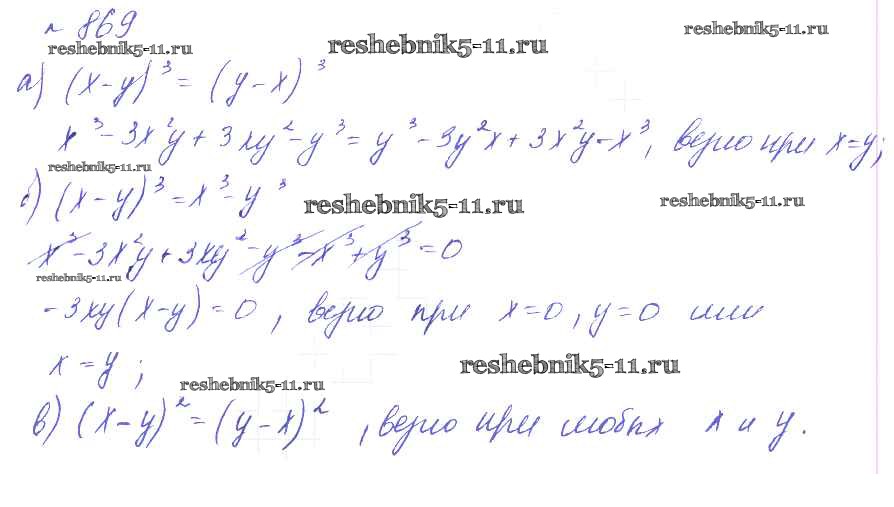 № 869
reshebnik5-11.ru reshebnik5-11.ru reshebnik5-11.ru
а) (x-y)³ = (y-x)³
x³ - 3x²y + 3xy² - y³ = y³ - 3y²x + 3x²y - x³, верно при x=y;
reshebnik5-11.ru
б) (x-y)³ = x³ - y³
reshebnik5-11.ru reshebnik5-11.ru
x³ - 3x²y + 3xy² - y³ - x³ + y³ = 0
reshebnik5-11.ru
-3xy(x-y) = 0, верно при x=0, y=0 или
x = y;
reshebnik5-11.ru
reshebnik5-11.ru
в) (x-y)² = (y-x)², верно при любых x и y.